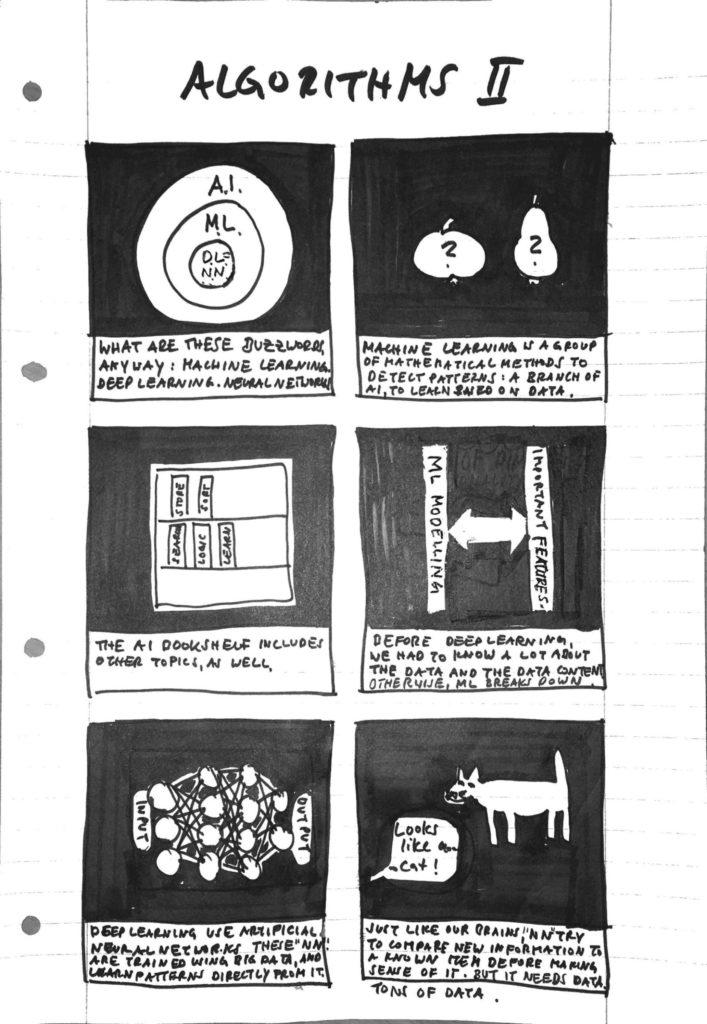 ALGORITHMS II
A.I.
M.L.
DL=
NN.
WHAT ARE THESE BUZZWORDS,
ANYWAY: MACHINE LEARNING.
DEEP LEARNING. NEURAL NETWORKS
?
?
MACHINE LEARNING IS A GROUP
OF MATHEMATICAL METHODS TO
DETECT PATTERNS: A BRANCH OF
AI, TO LEARN BASED ON DATA.
STORE
SORT
SEARCH
LOGIC
LEARN
THE AI BOOKSHELF INCLUDES
OTHER TOPICS, AS WELL.
ML MODELLING
IMPORTANT FEATURES.
BEFORE DEEP LEARNING,
WE HAD TO KNOW A LOT ABOUT
THE DATA AND THE DATA CONTENT
OTHERWISE, ML BREAKS DOWN.
INPUT
OUTPUT
DEEP LEARNING USE ARTIFICIAL
NEURAL NETWORKS THESE "NN"
ARE TRAINED USING BIG DATA, AND
LEARN PATTERNS DIRECTLY FROM IT.
Looks
like a
cat!
JUST LIKE OUR BRAINS, "NN" TRY
TO COMPARE NEW INFORMATION TO
A KNOWN ITEM BEFORE MAKING
SENSE OF IT. BUT IT NEEDS DATA.
TONS OF DATA.